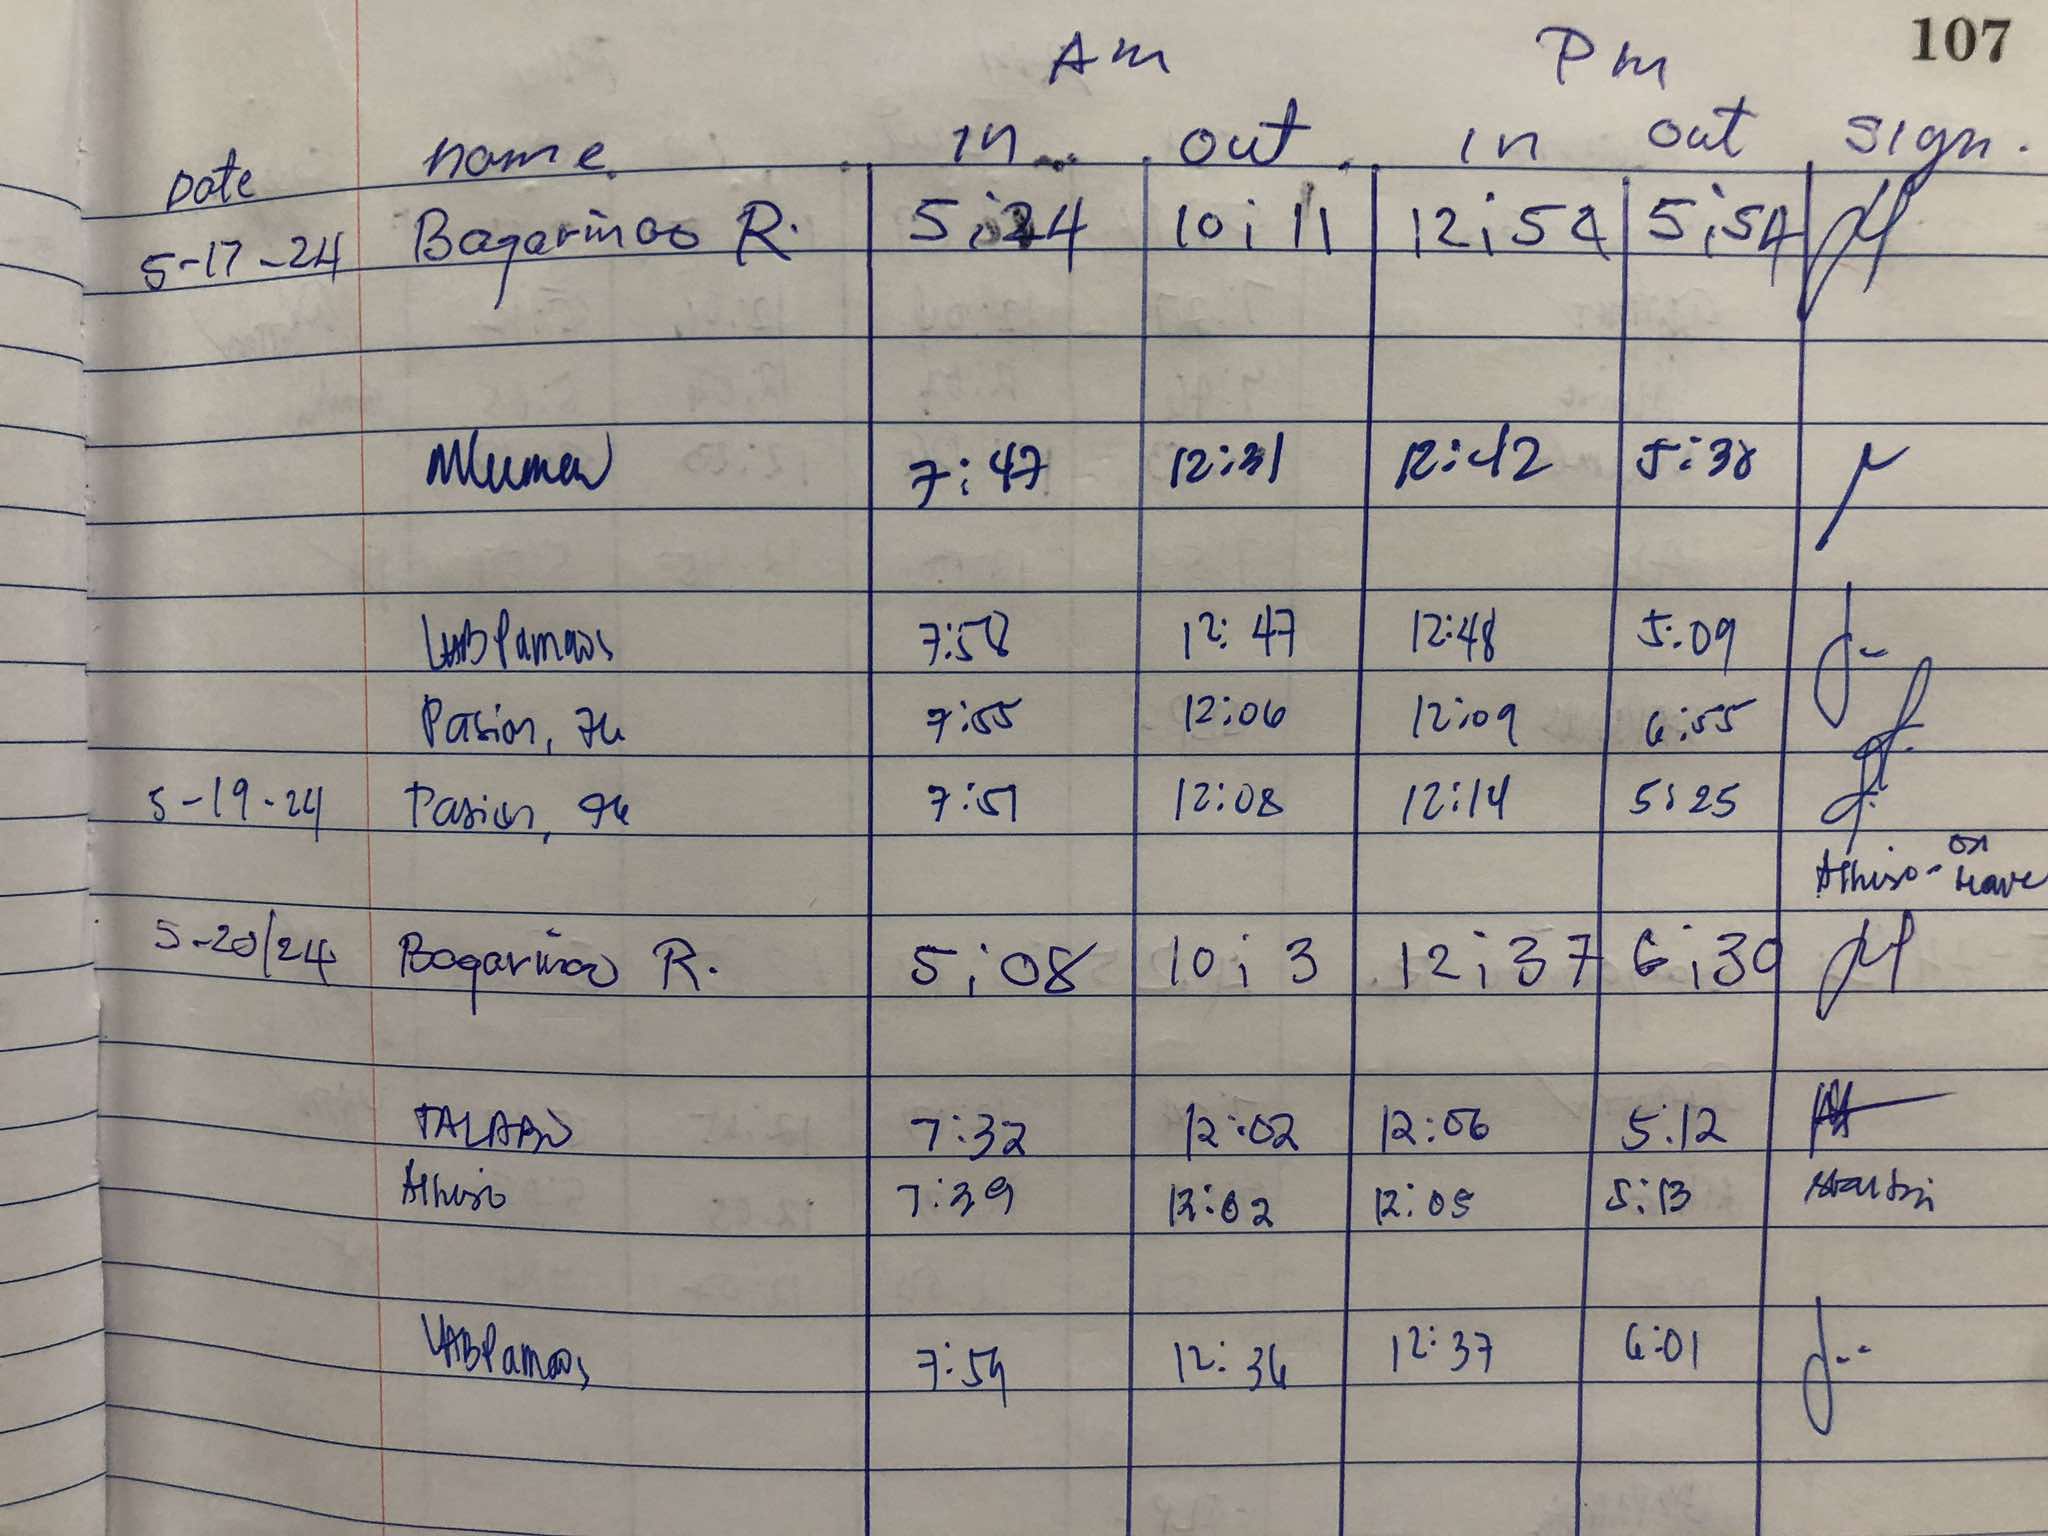 107
Am Pm
Date name in out in out sign.
5-17-24 Bagarinao R. 5:24 10:11 12:54 5:54
7:47 12:31 12:42 5:38
7:58 12:47 12:48 5:09
Pasion, 7:55 12:06 12:09 6:55
5-19-24 Pasion, 7:51 12:08 12:14 5:25
on leave
5-20/24 Bagarinao R. 5:08 10:3 12:37 6:30
TALABO 7:32 12:02 12:06 5:12
7:39 12:02 12:05 5:13
7:59 12:36 12:37 6:01